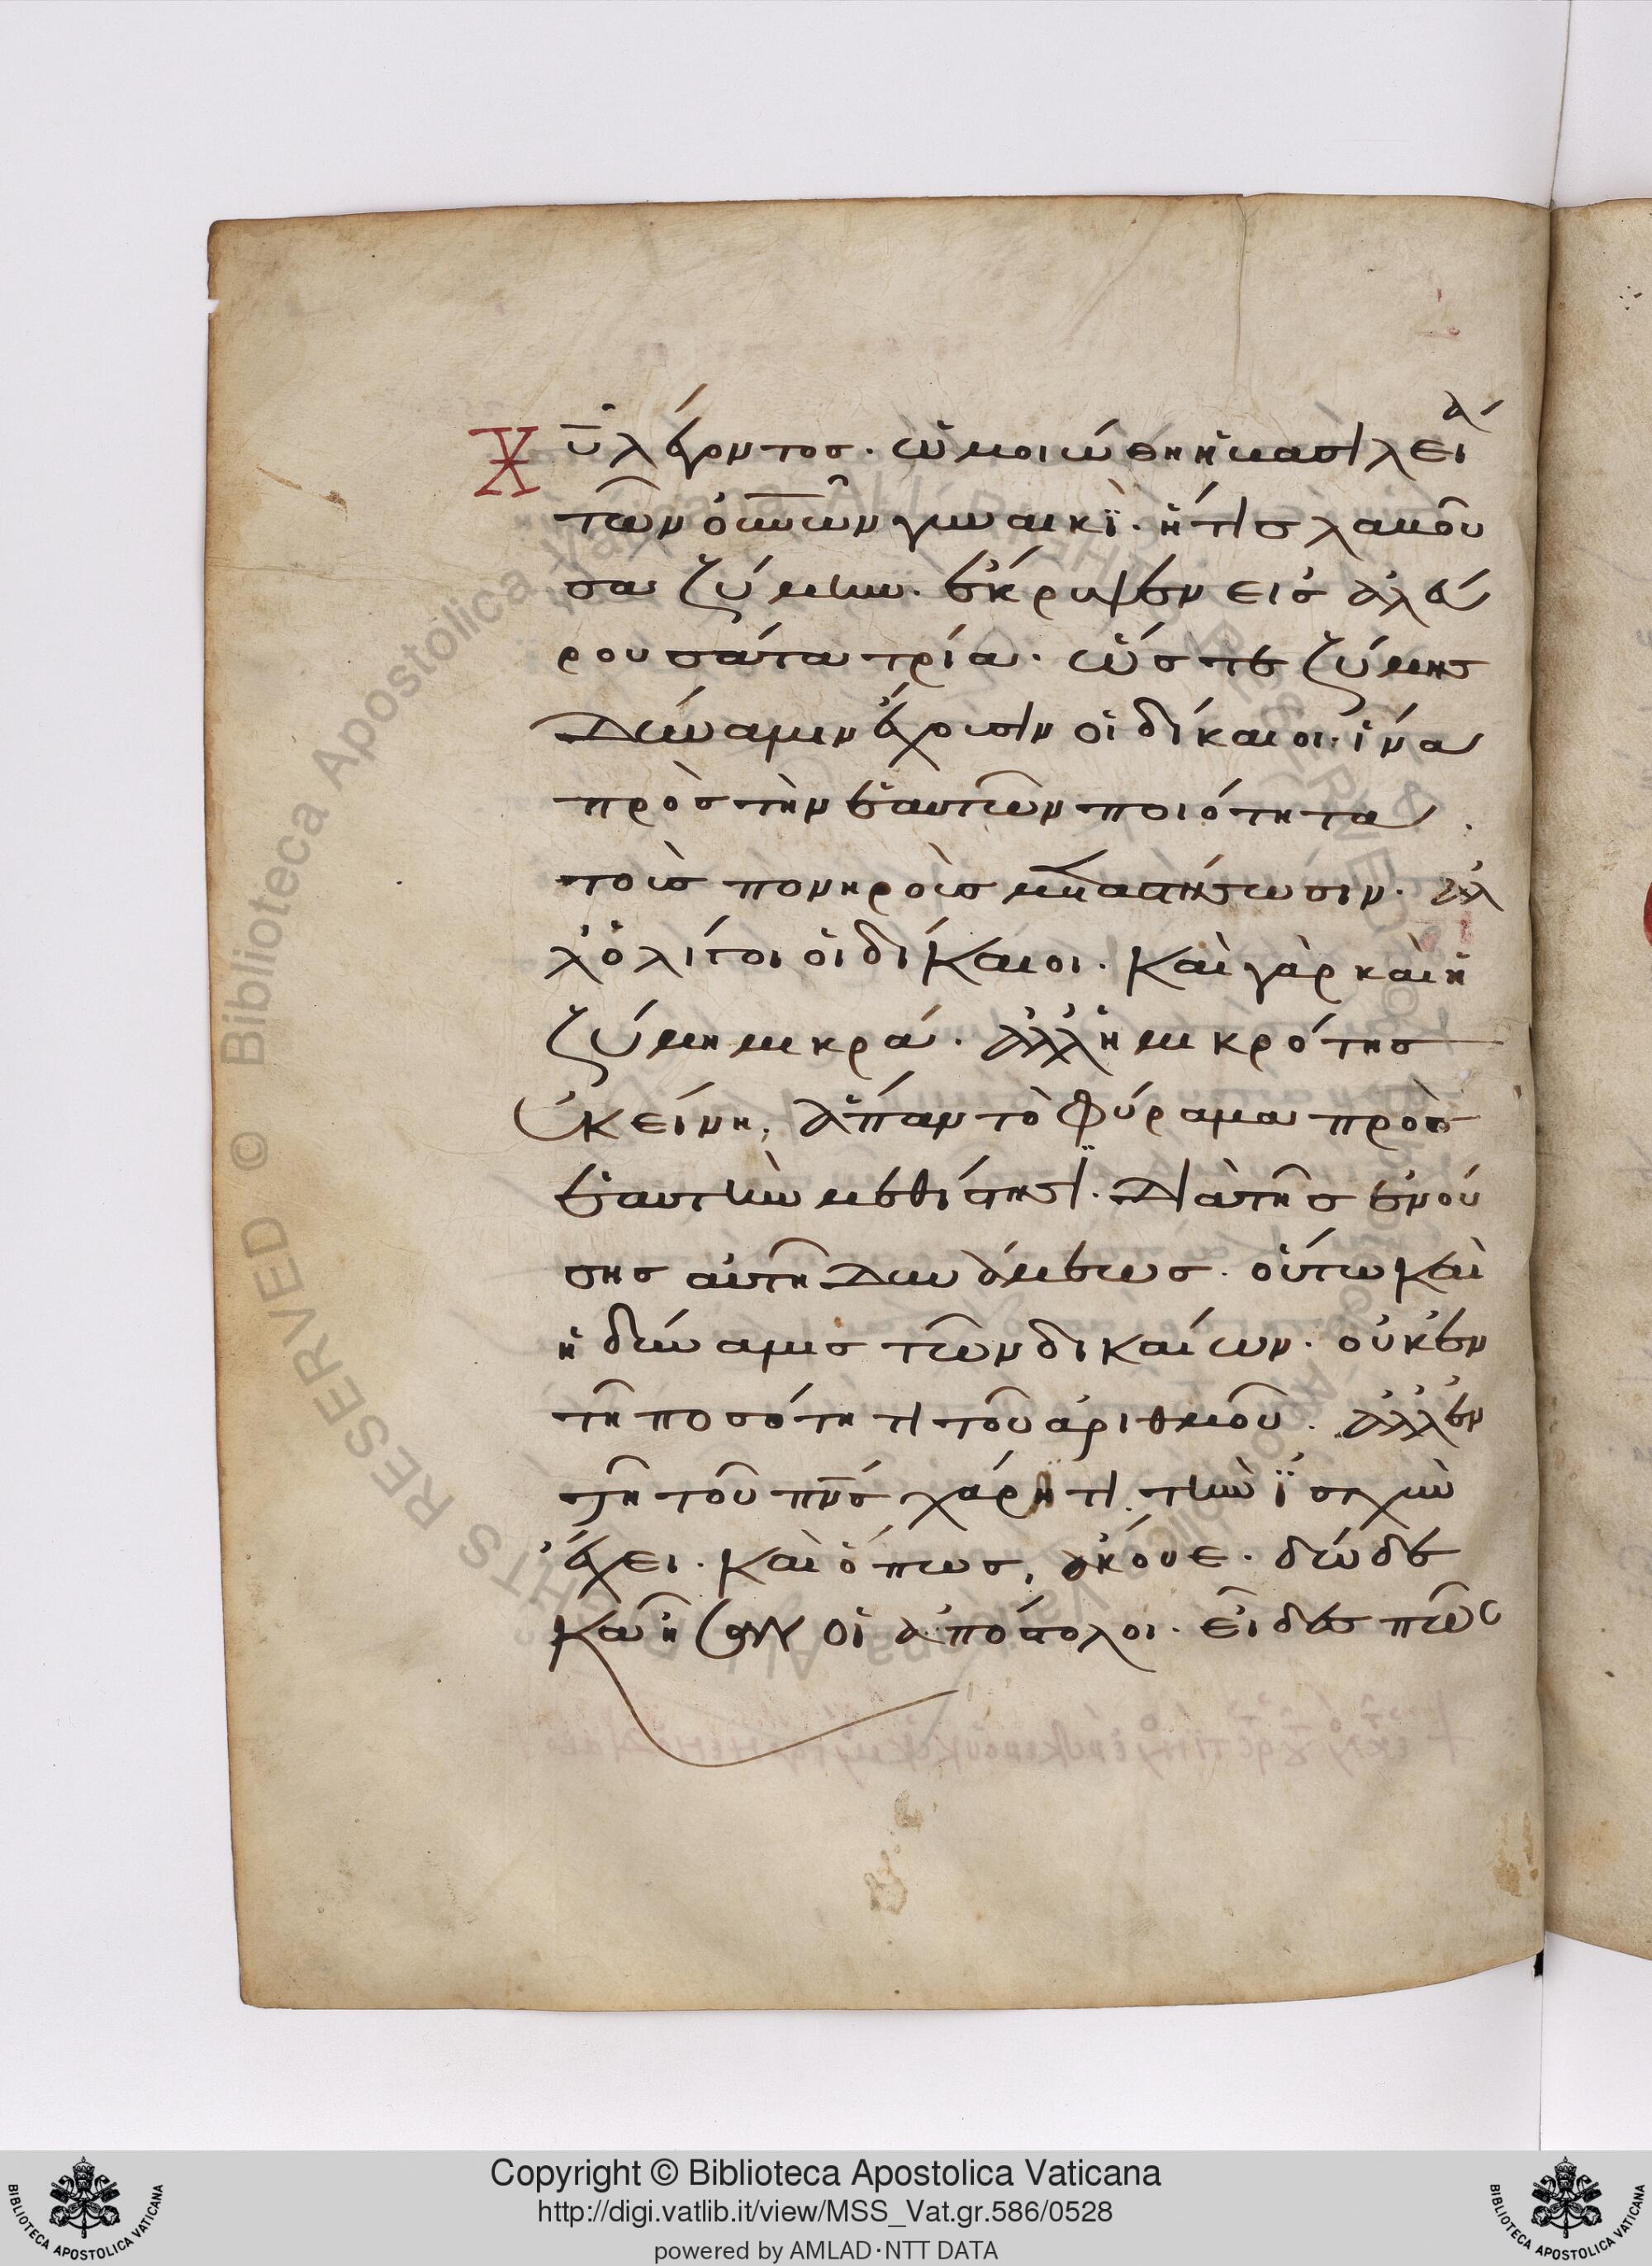 Χῦ λέγοντος. ὡμοιώθη ἡ βασιλεία
τῶν οὐνῶν γυναικὶ. ἥτις λαβοῦ
σα ζύμην. ἐνέκρυψεν εἰς ἀλεύ
ρου σάτα τρία. ὥστε ζύμης
δύναμιν ἔχουσιν οἱ δίκαιοι. ἵνα
πρὸς τὴν ἑαυτῶν ποιότητα
τοὺς πονηροὺς μεταστήσωσιν. ἀλ
λ' ὀλίγοι οἱ δίκαιοι. καὶ γὰρ καὶ ἡ
ζύμη μικρά. ἀλλ' ἡ μικρότης
ἐκείνη, ἅπαν τὸ φύραμα πρὸς
ἑαυτὴν μεθίστησι. διὰ τῆς ἐνού
σης αὐτῆ δυνάμεως. οὕτω καὶ
ἡ δύναμις τῶν δικαίων. οὐκ ἐν
τῆ ποσότητι τοῦ ἀριθμοῦ. ἀλλ' ἐν
τῆ τοῦ πνς χάριτι τὴν ἰσχὺν
ἔχει. καὶ ὅπως, ἄκουε. δώδε
κα ἦσαν οἱ ἀπόστολοι. εἶδες πῶς
Copyright © Biblioteca Apostolica Vaticana
http://digi.vatlib.it/view/MSS_Vat.gr.586/0528
powered by AMLAD·NTT DATA
BIBLIOTECA APOSTOLICA VATICANA
BIBLIOTECA APOSTOLICA VATICANA